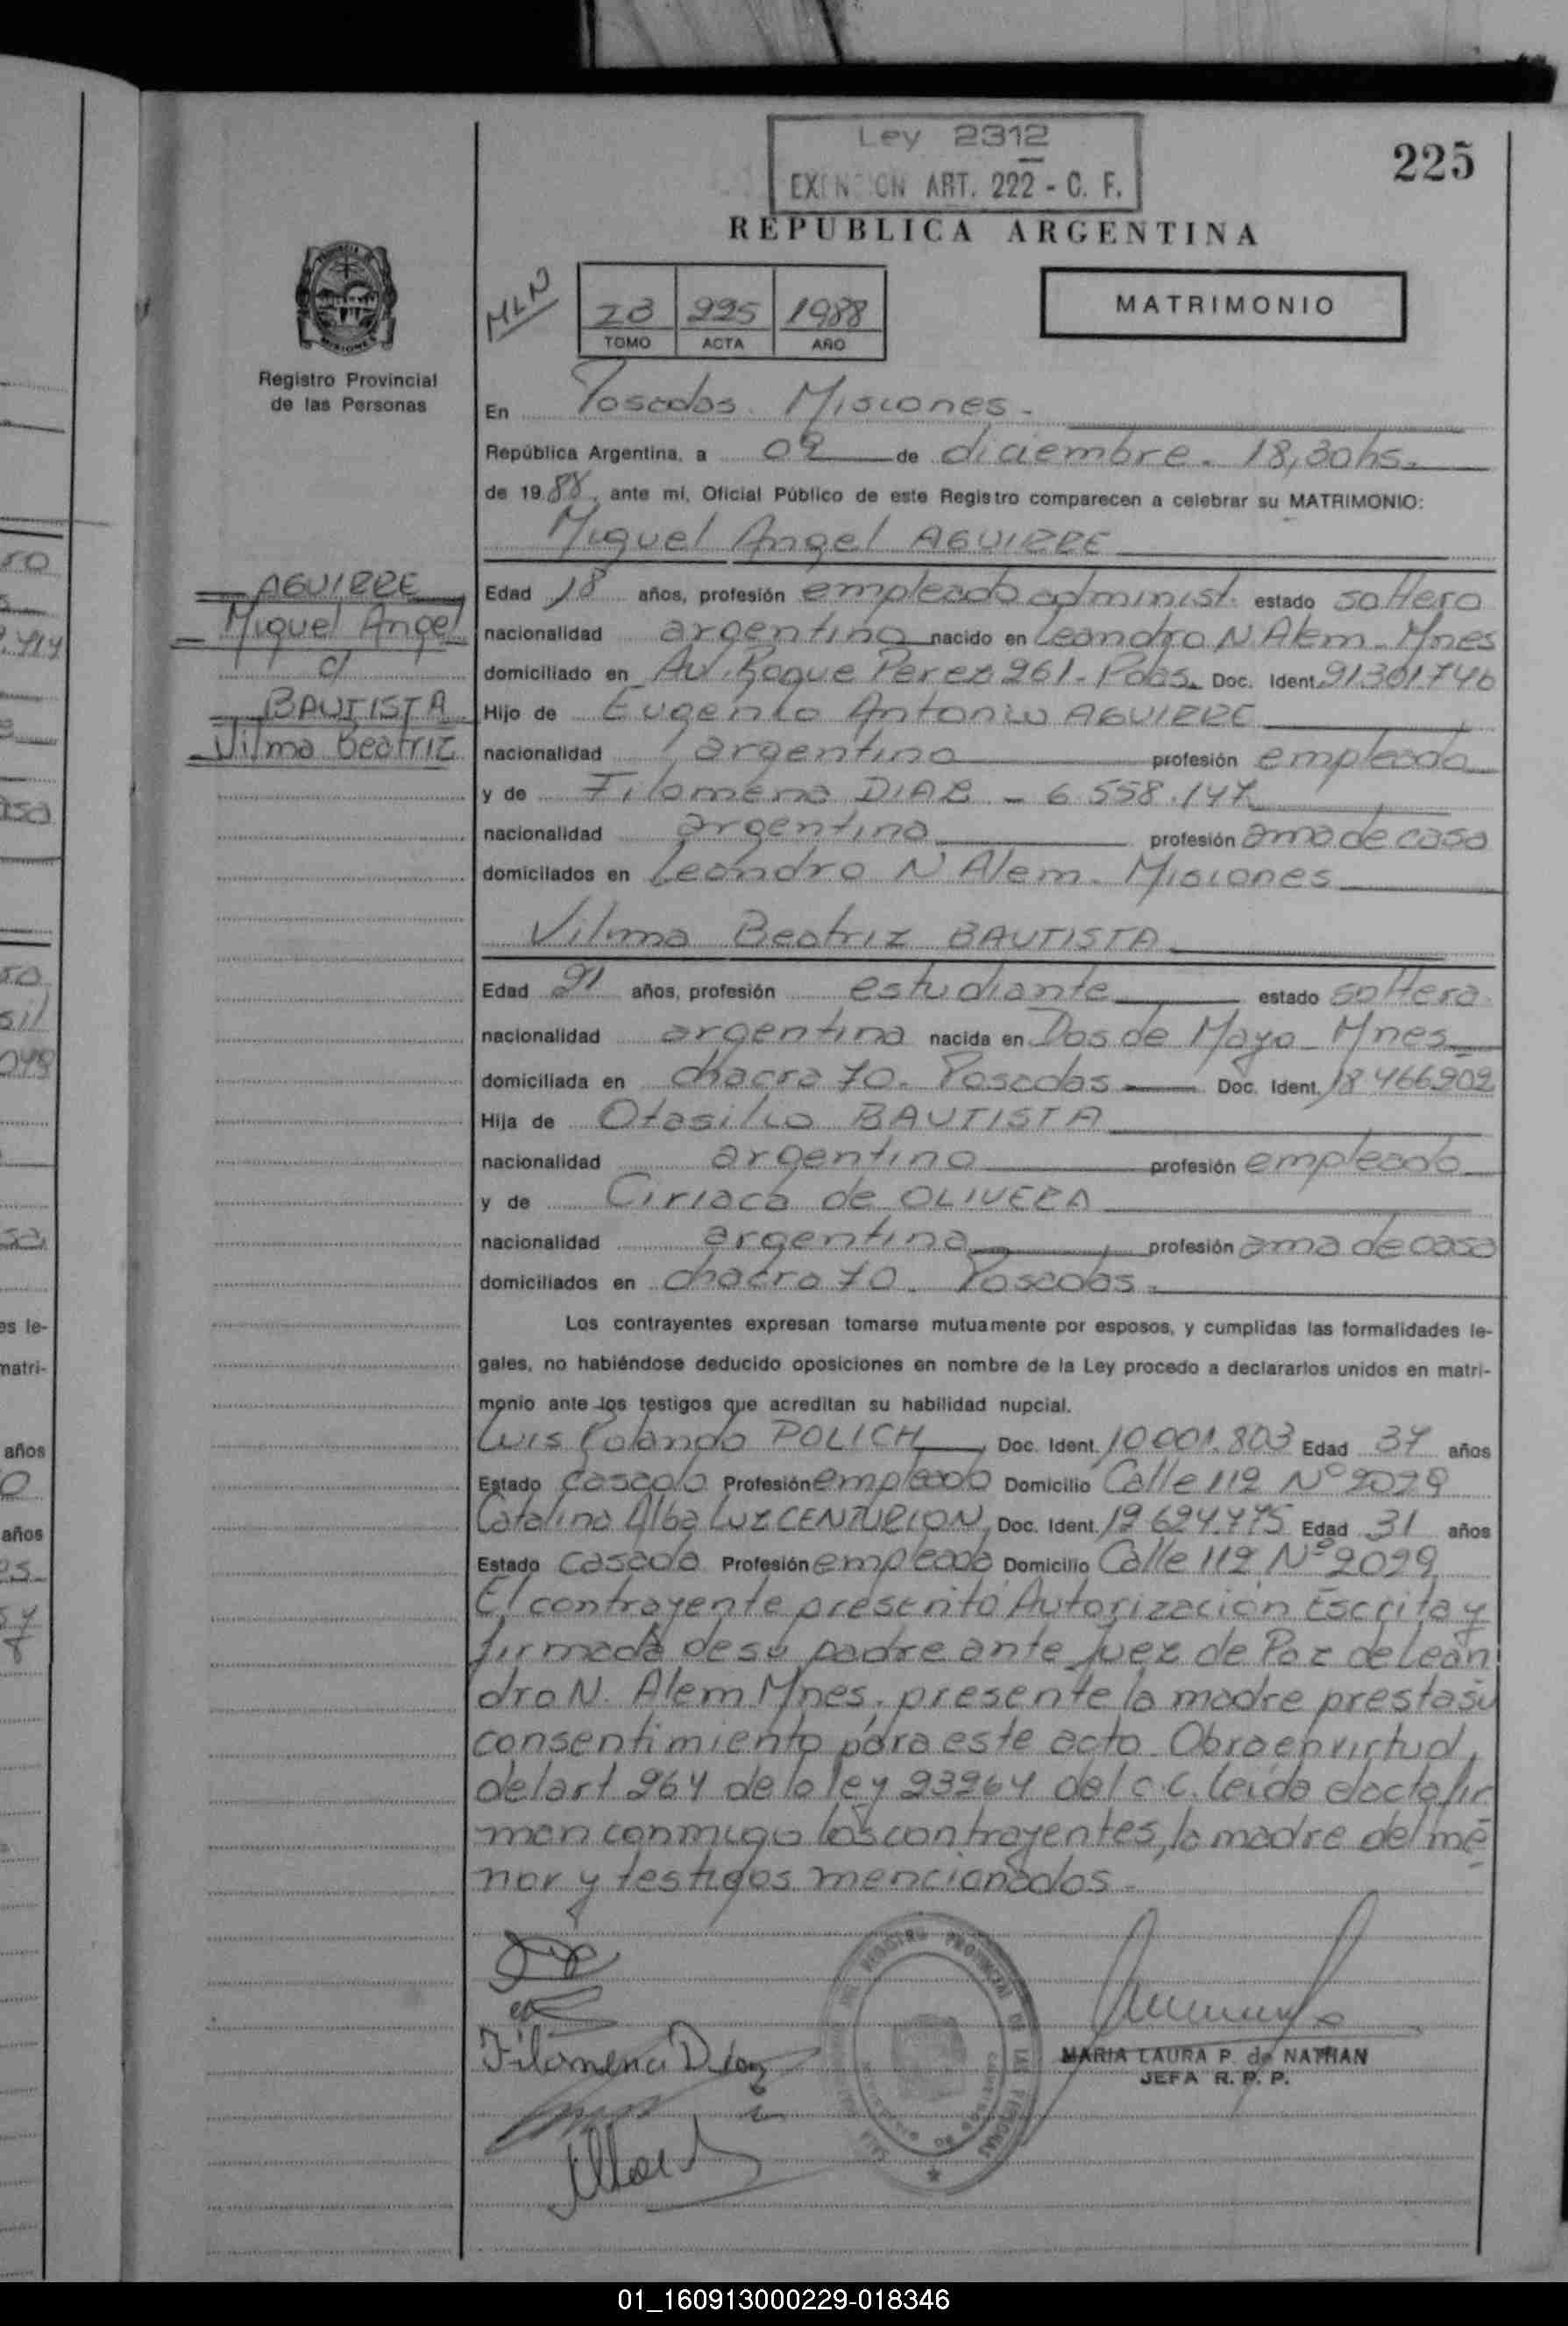 Ley 2312
EXENCION ART. 222 - C. F.
225
REPUBLICA ARGENTINA
MLN
225 1988
TOMO ACTA AÑO
MATRIMONIO
MISIONES
Registro Provincial
de las Personas
En Posadas. Misiones.
República Argentina, a 02 de diciembre. 18,30hs.
de 1988, ante mí, Oficial Público de este Registro comparecen a celebrar su MATRIMONIO:
Miguel Angel AGUIRRE
AGUIRRE
Miguel Angel
c/
BAUTISTA
Vilma Beatriz
Edad 18 años, profesión empleado administ. estado soltero
nacionalidad argentino nacido en Leandro N Alem - Mnes
domiciliado en Av. Roque Perez 261 - Pdas. Doc. Ident. 21.301.746
Hijo de Eugenio Antonio AGUIRRE
nacionalidad argentino profesión empleado
y de Filomena DIAZ - 6.558.147
nacionalidad argentina profesión ama de casa
domicilados en Leandro N Alem - Misiones
Vilma Beatriz BAUTISTA
Edad 21 años, profesión estudiante estado soltera
nacionalidad argentina nacida en Dos de Mayo - Mnes
domiciliada en chacra 70. Posadas Doc. Ident. 18.466.902
Hija de Otasilio BAUTISTA
nacionalidad argentino profesión empleado
y de Ciriaca de OLIVERA
nacionalidad argentina profesión ama de casa
domiciliados en chacra 70. Posadas.
Los contrayentes expresan tomarse mutuamente por esposos, y cumplidas las formalidades le-
gales, no habiéndose deducido oposiciones en nombre de la Ley procedo a declararlos unidos en matri-
monio ante los testigos que acreditan su habilidad nupcial.
Luis Rolando POLICH Doc. Ident. 10.001.803 Edad 37 años
Estado casado Profesión empleado Domicilio Calle 112 Nº 2029
Catalina Alba Luz CENTURION, Doc. Ident. 12.624.775 Edad 31 años
Estado casada Profesión empleada Domicilio Calle 112 Nº 2029
El contrayente presentó Autorización Escrita y
firmada de su padre ante Juez de Paz de Lean
dro N. Alem Mnes, presente la madre presta su
consentimiento para este acto. Obra en virtud
del art 264 de la ley 23264 del C.C. leída el acta fir
man conmigo los contrayentes, la madre del me
nor y testigos mencionados.
Filomena Diaz
MARIA LAURA P. de NATHAN
JEFA R. P. P.
01_160913000229-018346